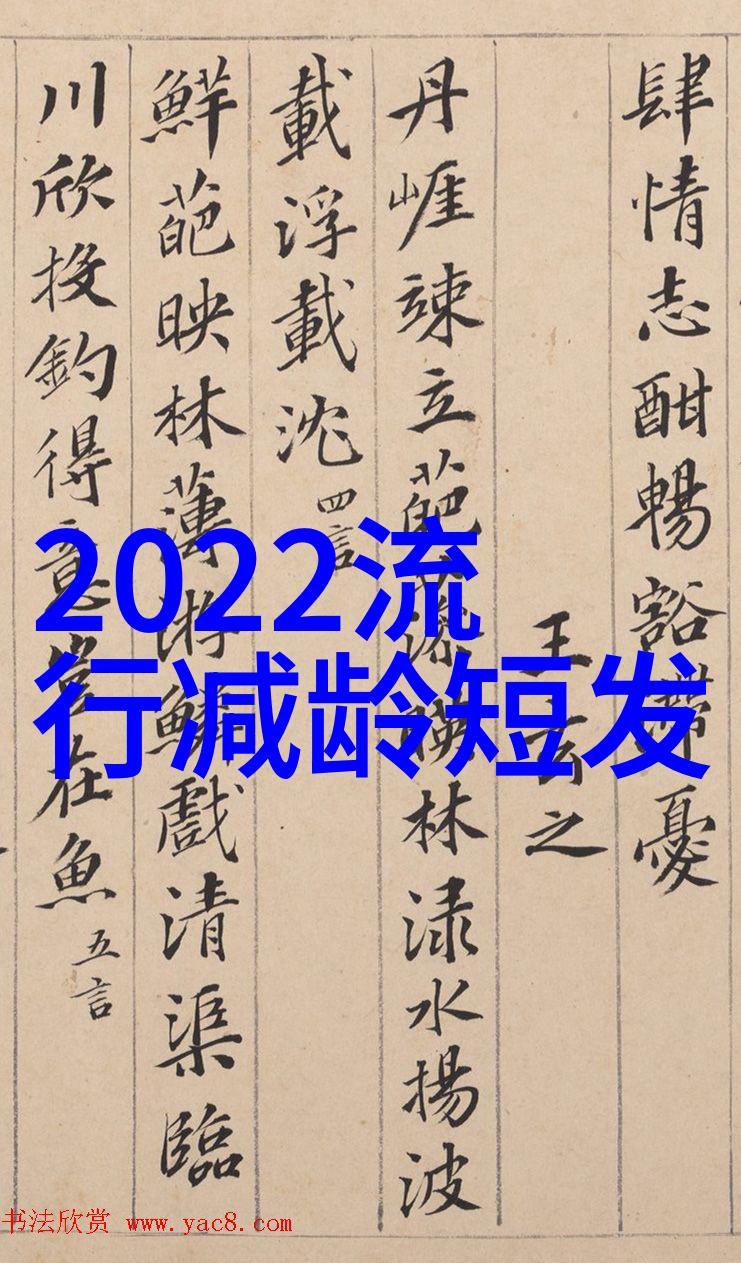 肆情志酣暢豁滯憂
王玄之
丹崖竦立葩藻暎林渌水揚波
載浮載沈 四言
鮮葩映林薄游鱗戲清渠臨
川欣投釣得意豈在魚 五言
2022流
行减龄短发
书法欣赏 www.yac8.com